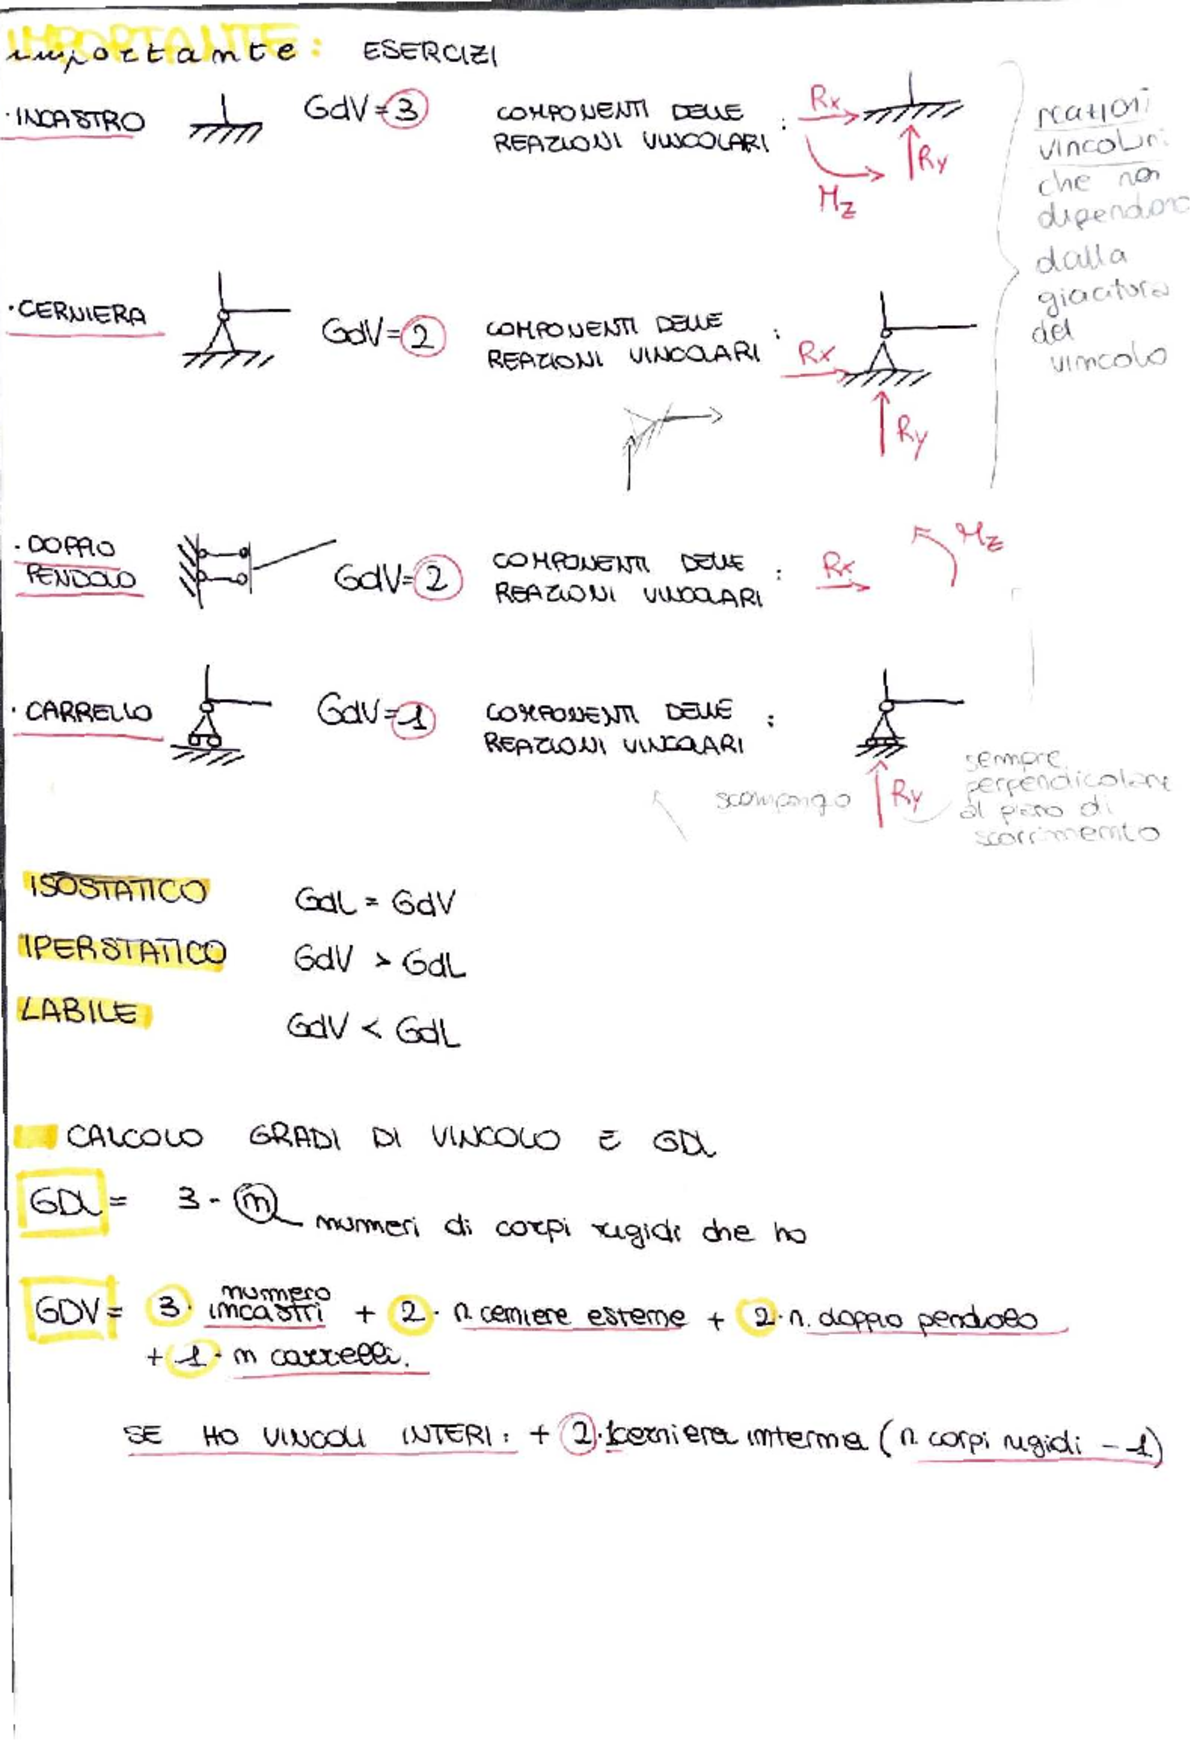 IMPORTANTE:
importante: ESERCIZI
·INCASTRO GdV=3 COMPONENTI DELLE REAZIONI VINCOLARI : Rx Ry Mz
reazioni
vincolari
che non
dipendono
dalla
giacitura
del
vincolo
·CERNIERA GdV=2 COMPONENTI DELLE REAZIONI VINCOLARI : Rx Ry
·DOPPIO PENDOLO GdV=2 COMPONENTI DELLE REAZIONI VINCOLARI : Rx Mz
·CARRELLO GdV=1 COMPONENTI DELLE REAZIONI VINCOLARI : Ry
scompongo
sempre
perpendicolare
al piano di
scorrimento
ISOSTATICO GdL = GdV
IPERSTATICO GdV > GdL
LABILE GdV < GdL
CALCOLO GRADI DI VINCOLO E GDL
GDL = 3 · n numeri di corpi rigidi che ho
GDV = 3 · numero incastri + 2 · n. cerniere esterne + 2 · n. doppio pendolo
+ 1 · n carrelli.
SE HO VINCOLI INTERI: + 2 · cerniera interna (n. corpi rigidi - 1)